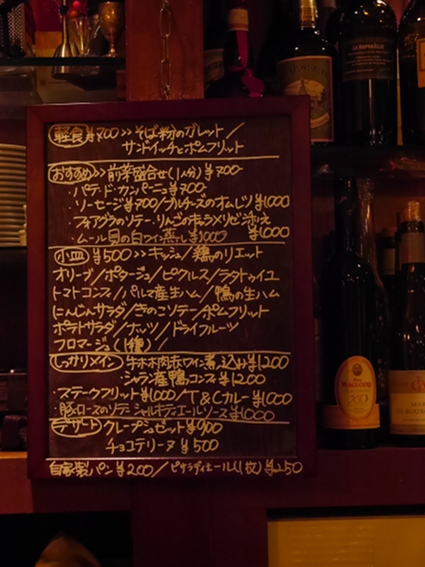 軽食 ¥700>>そば粉のガレット/
サンドイッチとポムフリット
おすすめ>>前菜盛合せ(1人分)¥700
・パテ・ド・カンパーニュ¥700
・ソーセージ¥700/ブルーチーズのオムレツ¥1000
・フォアグラのソテー・りんごのキャラメリゼ添え ¥1000
・ムール貝の白ワイン蒸し¥1000
小皿 ¥500>>キッシュ/鶏のリエット
オリーブ/ポタージュ/ピクルス/ラタトゥイユ
トマトコンフィ/パルマ産生ハム/鴨の生ハム
にんじんサラダ/きのこソテー/ポムフリット
ポテトサラダ/ナッツ/ドライフルーツ
フロマージュ(1種)/
しっかりメイン 牛ホホ肉赤ワイン煮込み¥1200
シャラン産鴨コンフィ ¥1200
・ステークフリット¥1000/T&Cカレー¥1000
・豚ロースのソテー シャルキティエールソース¥1000
デザート クレープシュゼット¥900
チョコテリーヌ ¥500
自家製パン ¥200/ピサラディエール(1枚)¥250